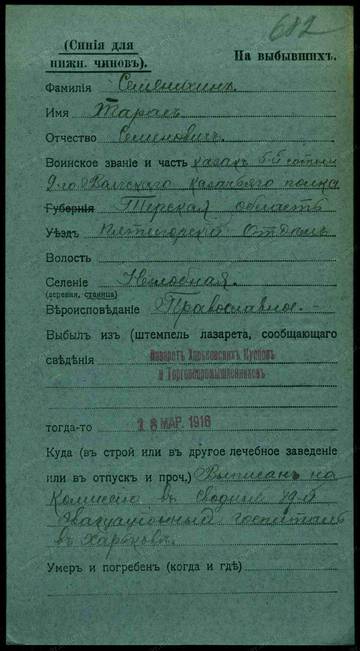 682
(Синія для
нижн. чиновъ).
На выбывшихъ.
Фамилія Семенихинъ.
Имя Тарасъ
Отчество Семеновичъ.
Воинское званіе и часть казакъ 5-й сотни
2-го Волгскаго казачьяго полка
Губернія Терская область
Уѣздъ Пятигорскій Отдѣлъ
Волость
Селеніе Незлобная.
(деревня, станица)
Вѣроисповѣданіе Православное.
Выбылъ изъ (штемпель лазарета, сообщающаго
свѣдѣнія Лазаретъ Харьковскихъ Купцовъ
и Торговопромышленниковъ
тогда-то 18 МАР. 1916
Куда (въ строй или въ другое лечебное заведеніе
или въ отпускъ и проч.) Выписанъ на
Комиссію въ сводный 49-й
Эвакуаціонный госпиталь
въ Харьковѣ.
Умеръ и погребенъ (когда и гдѣ)